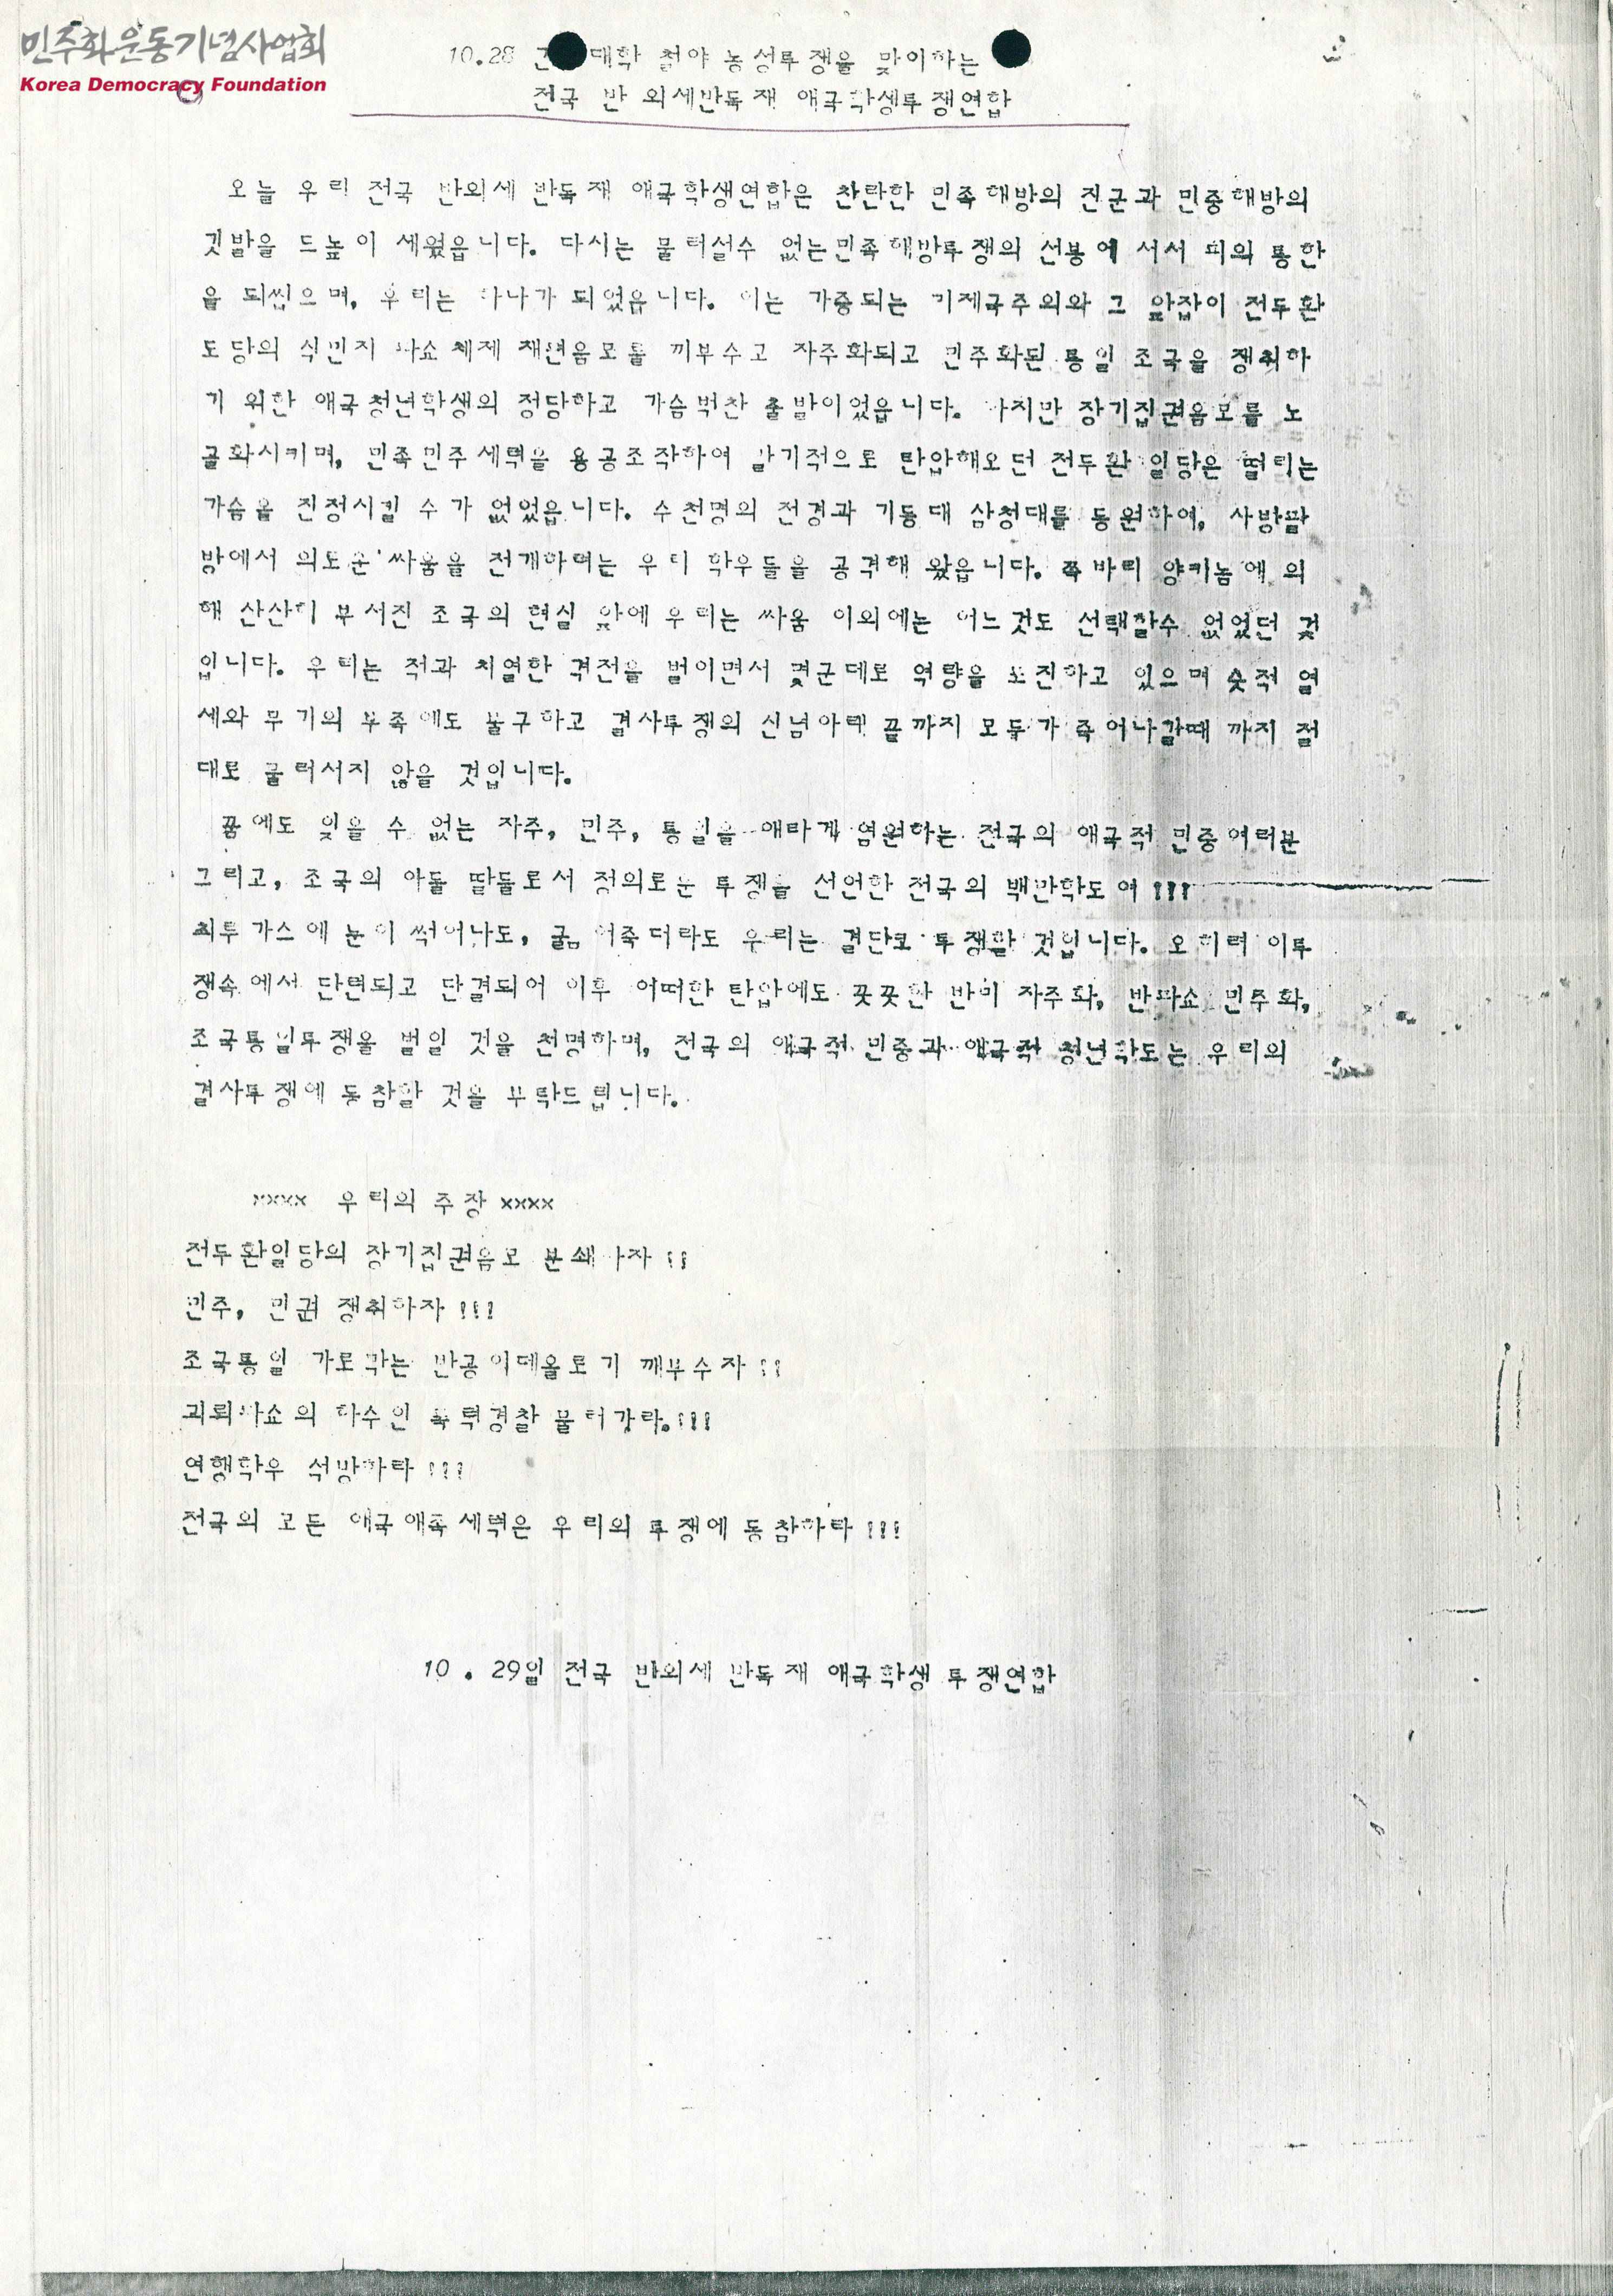 민주화운동기념사업회
Korea Democracy Foundation
10.28 대학 철야 농성투쟁을 맞이하는
전국 반 외세반독재 애국학생투쟁연합
오늘 우리 전국 반외세 반독재 애국학생연합은 찬란한 민족해방의 진군과 민중해방의
깃발을 드높이 세웠읍니다. 다시는 물러설수 없는민족해방투쟁의 선봉에 서서 피의 통한
을 되씹으며, 우리는 하나가 되었읍니다. 이는 가중되는 미제국주의와 그 앞잡이 전두환
도당의 식민지 파쇼체제 재편음모를 끼부수고 자주화되고 민주화된 통일 조국을 쟁취하
기 위한 애국청년학생의 정당하고 가슴벅찬 출발이었읍니다. 하지만 장기집권음모를 노
골화시키며, 민족민주세력을 용공조작하여 발기적으로 탄압해오던 전두환 일당은 떨리는
가슴을 진정시킬 수가 없었읍니다. 수천명의 전경과 기동대 삼청대를 동원하여, 사방팔
방에서 의로운 싸움을 전개하려는 우리 학우들을 공격해 왔읍니다. 쪽바리 양키놈에 의
해 산산히 부서진 조국의 현실 앞에 우리는 싸움 이외에는 어느것도 선택할수 없었던 것
입니다. 우리는 적과 치열한 격전을 벌이면서 몇군데로 역량을 포진하고 있으며 숫적 열
세와 무기의 부족에도 불구하고 결사투쟁의 신념아래 끝까지 모두가 죽어나갈때 까지 절
대로 물러서지 않을 것입니다.
꿈에도 잊을 수 없는 자주, 민주, 통일을 애타게 염원하는 전국의 애국적 민중여러분
그리고, 조국의 아들 딸들로서 정의로운 투쟁을 선언한 전국의 백만학도여 !!!
최루가스에 눈이 썩어나도, 굶어죽더라도 우리는 결단코 투쟁할 것입니다. 오히려 이투
쟁속에서 단련되고 단결되어 이후 어떠한 탄압에도 꿋꿋한 반미 자주화, 반파쇼 민주화,
조국통일투쟁을 벌일 것을 천명하며, 전국의 애국적 민중과 애국적 청년학도는 우리의
결사투쟁에 동참할 것을 부탁드립니다.
xxxx 우리의 주장 xxxx
전두환일당의 장기집권음모 분쇄하자 !!
민주, 민권 쟁취하자 !!!
조국통일 가로막는 반공이데올로기 깨부수자 !!
괴뢰파쇼의 하수인 폭력경찰 물러가라.!!!
연행학우 석방하라 !!!
전국의 모든 애국애족세력은 우리의 투쟁에 동참하라 !!!
10 . 29일 전국 반외세 반독재 애국학생 투쟁연합